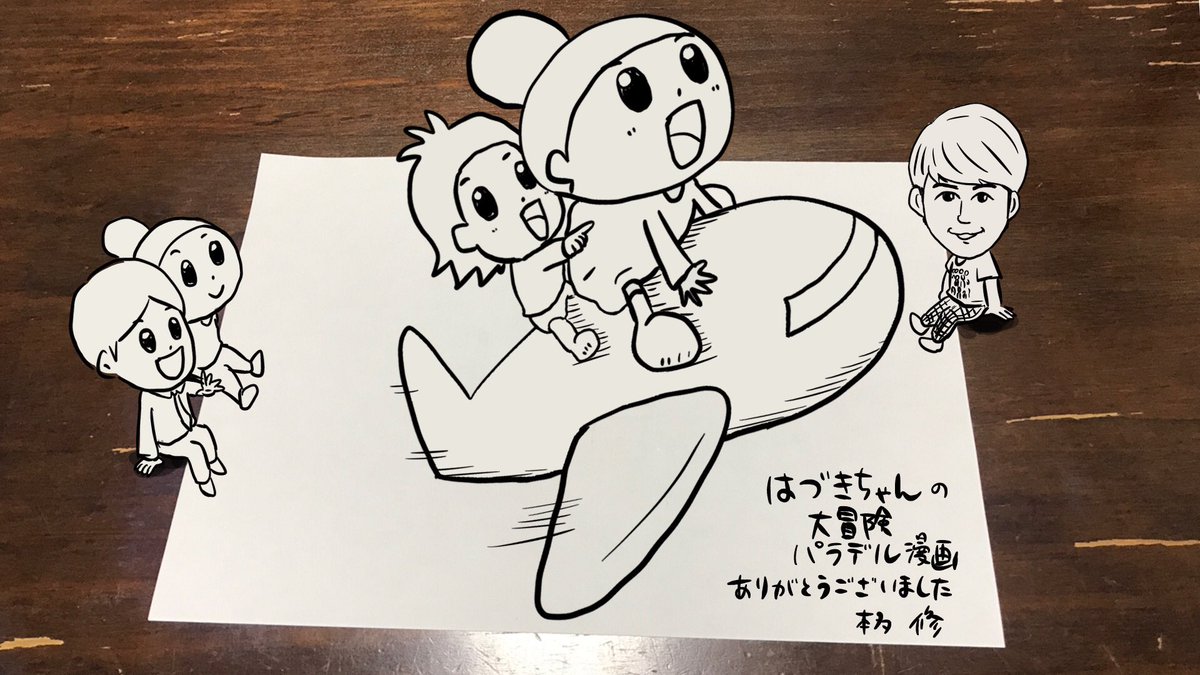 はづきちゃんの
大冒険
パラデル漫画
ありがとうございました
本多 修